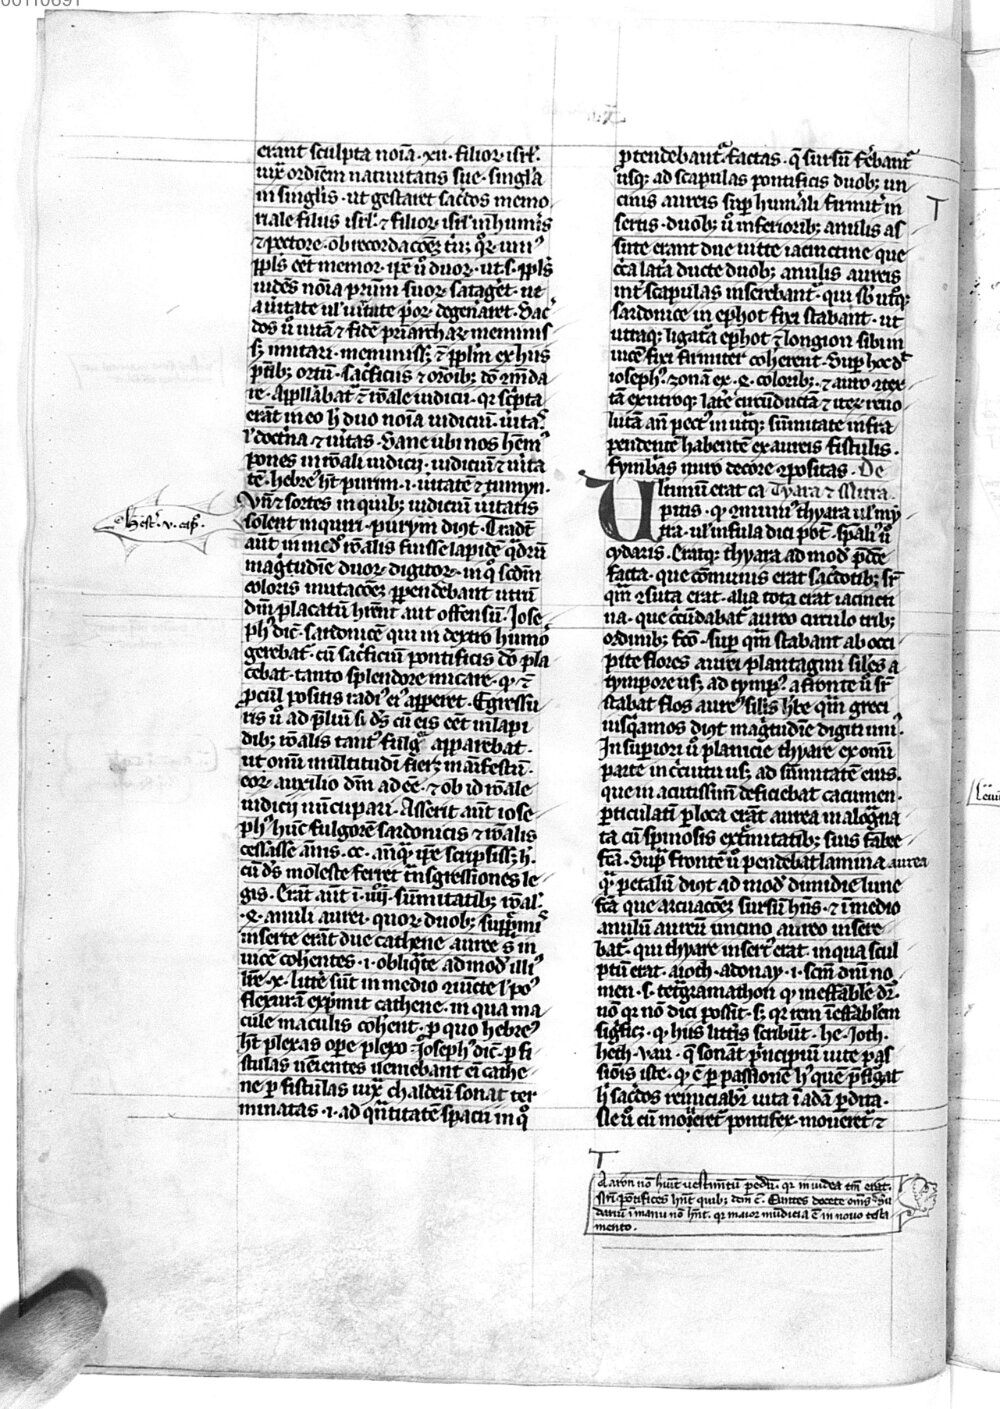 erant sculpta noīa · xii · filioꝝ isrl̄ ·
iux̄ ordinem natiuitatis sue · singl̄a
in singl̄is · ut gestaret sac̄dos memo
riale filiis isrl̄ · ⁊ filioꝝ isrl̄ in hum̄is
⁊ pectore · ob recordacōeꝫ
ppl̄s eēt memor · ip̄e u̇ duoꝝ · ut · s · ppl̄s
uidēs noīa prīm suoꝝ satageret · ne
a uirtate ul' uītate p̄oꝝ degenaret · Sac̄
dos u̇ uitā ⁊ fidē pr̄iarchaꝝ meminiss
sꝫ imitari · meminissꝫ ⁊ ipl̄m ex hiis
ortū · sac̄ficiis ⁊ or̄oibꝫ dō
re · Appllabat᷑ ⁊ rōale iudicii · qꝛ sc̄pta
erāt in eo h̄ duo noīa iudiciū · ūitas
l' doct̄na ⁊ ūitas · Sane ubi nos
pones in rōali iudicij · iudiciū ⁊ uīta
tē · hebreꝰ h̄t purim · i · uītatē ⁊ tumyn ·
Vn̄ ⁊ sortes in quibꝫ iudiciū ūitatis
solent inquiri · purym dn̄t · Tradūt
aūt in med̄ rōalis fuisse lapidē q̄drū
mag̅tudīe duoꝝ digitoꝝ · in qͦ scd̄m
coloris mutacōeꝫ ꝑpendebant utrū
dn̄m placatū hirent aut offensū · Jose
phꝰ dic̄ · sardonicē qui in dextro humͦo
gerebat᷑ · cū sac̄ficiū pontificis dō pla
cebat · tanto splendore micare · qͫ ⁊
ꝓcul positis radiꝰ eiꝰ apꝑeret · Egressu
ris u̇ ad p̄liū si d̄s cū eis eēt in lapi
dibꝫ rōalis tantꝰ fulgͦ apparebat ·
ut om̄i multitudī fieret manifestū ·
eoꝝ auxilio dn̄m adeē · ⁊ ob id rōale
iudicij nūcupari · Asserit aūt iose
phꝰ hūc fulgorē sardonicis ⁊ rōalis
cessasse ānis · cc · anq̄ ip̄e scripsissꝫ h̄ ·
cū d̄s moleste ferret t̄nsg̅ssiones le
gis · Erāt aūt ī · iiij · sūmitatibꝫ rōal'
· Q · anuli aurei · quoꝝ duobꝫ supp̄mis
inserte erāt due cathene auree s' in
uicē coh̄entes · i · obliq̄te ad mod̄ illiꝰ
lr̄e · x · litte sūt in medio iūcte l' poꝰ
flexurā exp̄mit cathene · in qua ma
cule maculis coh̄ent · ꝑ quo hebreꝰ
h̄t plexas oꝑe plexo · Josephꝰ dic̄ · ꝑ fi
stulas ueīentes ueniebant eī cathe
ne ꝑ fistulas iux̄ chaldeū sonat ter
minatas · i · ad q̄ntitatē spacii in qͦ
Hest᷑ · v · cap̄ ·
p̄tendebant᷑ factas · q̄ sursū fēbant᷑
usqꝫ ad scapulas pontificis duobꝫ un
cinis aureis suꝑ hum̄ali firmit᷑ in
sertis · duobꝫ u̇ inferioribꝫ anulis as
sute erant due uitte iacinctine que
c̄ca lat̄a ducte duobꝫ anulis aureis
int᷑ scapulas inserebant᷑ · qui sb̄ utͦqꝫ
sardonice in ephot fixi stabant · ut
utraqꝫ ligatā ephot ⁊ longion sibi in
uicē fixi firmiter coh̄erent · Suꝑ hoc d̄t
iosephꝰ · zonā ex · Q · coloribꝫ · ⁊ auro ↄtex
tā ex utroqꝫ lat̄e circūductā ⁊ iteꝝ reuo
lutā an̄ pectꝰ in ut̄qꝫ sūmitate infra
pendente habentē ex aureis fistulis ·
fymbias miro decore ↄpositas · De
Ultimū erat ca Tyara ⁊ Mitra
pitis · qͫ ↄmunit᷑ thyara ul' my
tra · ul' infula dici pōt · spāli u̇
cydaris · Eratqꝫ thyara ad mod̄ p̄dce
facta · que cōmunis erat sac̄dotibꝫ sꝫ
qm̄ ↄsuta erat · alia tota erat iacincti
na · que c̄cūdabat᷑ aureo circulo tribꝫ
ordinibꝫ fc̄o · suꝑ qm̄ stabant ab occi
pite flores aurei plantagini sil̄es a
tympore usqꝫ ad tympꝰ · a fronte u̇ sꝫ
stabat flos aureꝰ sil̄is hr̄be qm̄ greci
iusq̄amos dn̄t mag̅tudīe digiti uniꝰ
In suꝑiori u̇ planicie thyare ex om̄i
parte in c̄cuitu usꝫ ad sūmitatē eius ·
que in acutissim̄ deficiebat cacumen ·
ꝑticulati ploca erāt aurea malog̅na
ta cū spinosis ext̄mitatibꝫ suis fab̄re
fc̄a · Suꝑ frontē u̇ pendebat lamina aurea
q̄ petalū dn̄t ad mod̄ dimidie lune
fc̄a que arcuacōeꝫ sursū hn̄s · ⁊ ī medio
anulū aureū uncino aureo insere
bat᷑ · qui thyare insert᷑ erat · in qua scul
ptū erat · aioth · adonay · i · scm̄ dn̄i no
men · s · tetg̅ramathon qͫ ineffabile d̄r ·
nō qꝛ nō dici possit · sꝫ qꝛ rem īeffabilem
sig̅ficꝫ · qͫ hiis litt̄is scribūt · he · Joth ·
heth · vau · q̄ sonāt p̄ncipiū uite pas
siōis iste · qͫ ē ꝑ passionē h' que p̄fig̅at
h̄ sac̄dos reinciabr̄ uita ī adā ꝑdita ·
Ille u̇ cū moueret᷑ pontifex · moueret᷑ ⁊
T
T
Aaron nō hūit uestim̄tū pedū · qꝛ in iudea tm̄ erat ·
Sꝫ pōtifices hn̄t quibꝫ dc̄m ē · Euntes docete om̄s · Su
dariū ī manu nō hn̄t · qꝛ maior mūdicia ē in nouo testa
mento ·